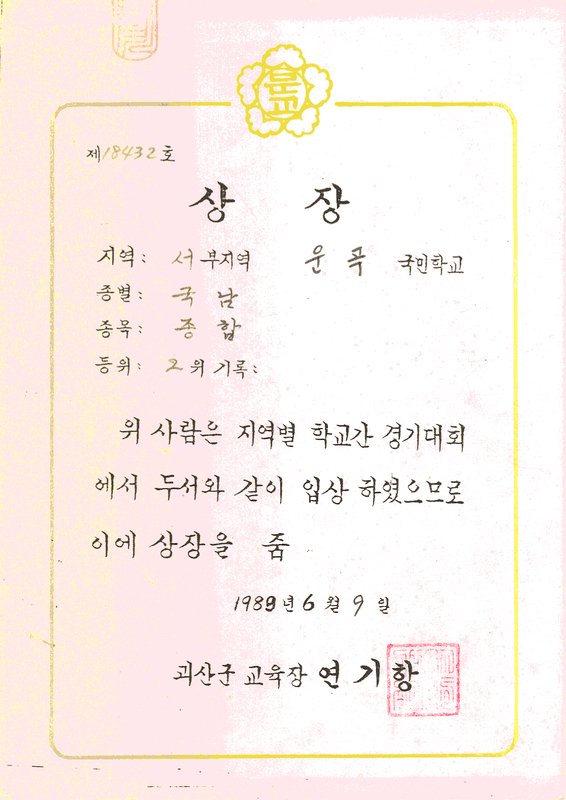 은교
제18432호
상 장
지역: 서부지역 운곡 국민학교
종별: 국남
종목: 종합
등위: 2위 기록:
위 사람은 지역별 학교간 경기대회
에서 두서와 같이 입상 하였으므로
이에 상장을 줌
1989년 6월 9일
괴산군 교육장 연기항